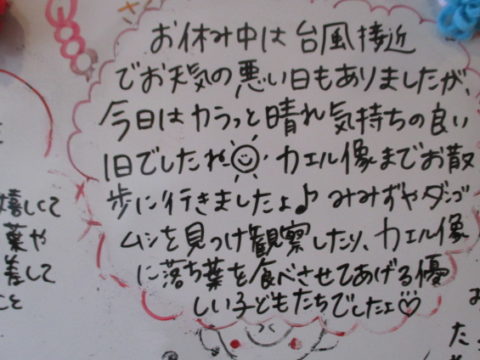 お休み中は台風接近
でお天気の悪い日もありましたが、
今日はカラっと晴れ気持ちの良い
1日でしたね カエル像までお散
歩に行きましたよ♪ みみずやダンゴ
ムシを見つけ観察したり、カエル像
に落ち葉を食べさせてあげる優
しい子どもたちでしたェ♡
嬉しくて
葉や
差して
こと
み
た